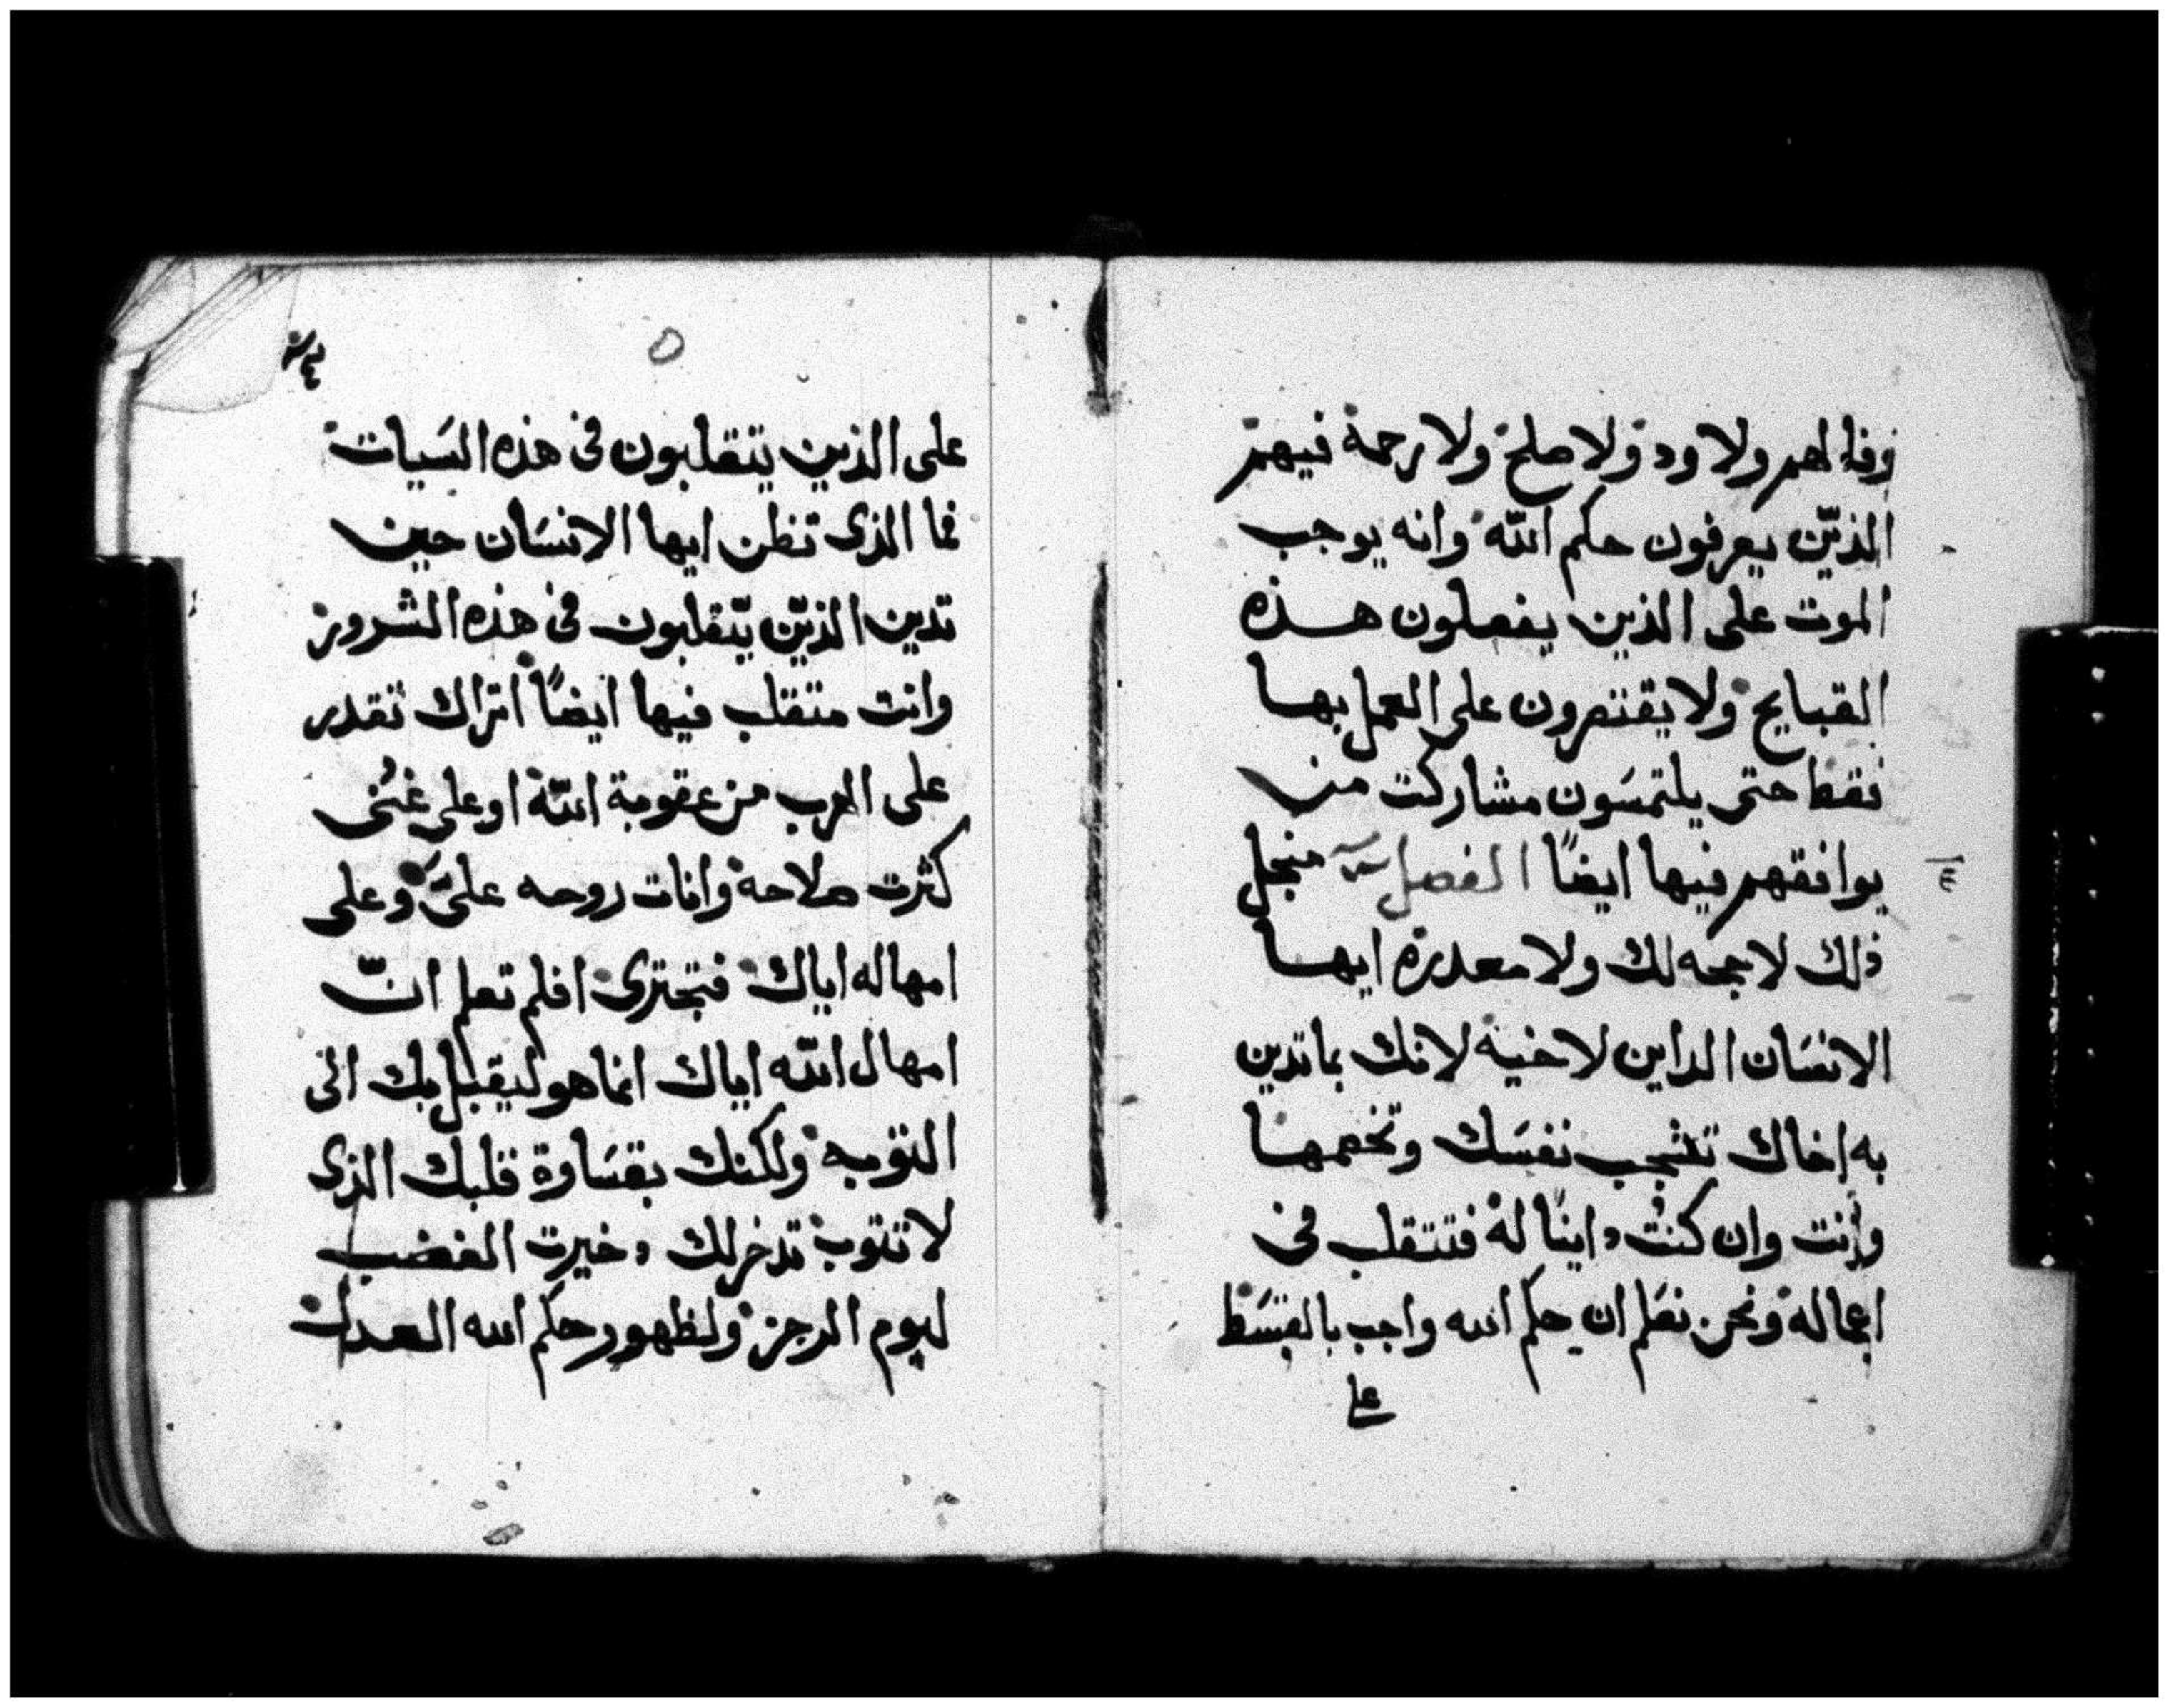 وفا لهم ولا ود ولا صلح ولا رحمة فيهم
الذين يعرفون حكم الله وانه يوجب
الموت على الذين يفعلون هذه
القبايح ولا يقتصرون على العمل بها
فقط حتى يلتمسون مشاركت من
يوافقهم فيها ايضًا الفصل منجل
٤
ذلك لا حجه لك ولا معدرة ايها
الانسان الداين لاخيه لانك بما تدين
به اخاك تشجب نفسك وتخصمها
وانت وان كنت داينًا له فتتقلب في
اعماله ونحن نعلم ان حكم الله واجب بالقسط
على
على الذين يتقلبون في هذه السيات
فما الذى تظن ايها الانسان حين
تدين الذين يتقلبون في هذه الشرور
وانت متقلب فيها ايضًا اتراك تقدر
على الهرب من عقوبة الله او على غنى
كثرت صلاحه وانات روحه على وعلى
امهاله اياك فتجترى افلم تعلم انّ
امهال الله اياك انما هو ليقبل بك الى
التوبه ولكنك بقساوة قلبك الذى
لا تتوب تدخر لك دخيرت الغضب
ليوم الرجز ولظهور حكم الله العدل